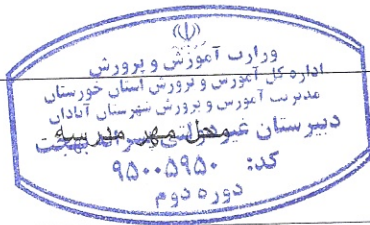 وزارت آموزش و پرورش
اداره کل آموزش و پرورش استان خوزستان
مدیریت آموزش و پرورش شهرستان آبادان
دبیرستان غیر بهجت
محل مهر مدرسه
کد: ۹۵۰۰۵۹۵۰
دوره دوم